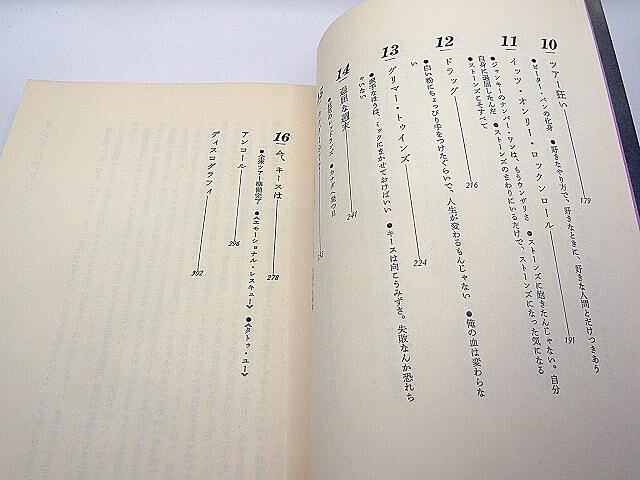 10 ツアー狂い 179
●ピーター・パンの化身 ●好きなやり方で、好きなときに、好きな人間とだけつきあう
11 イッツ・オンリー・ロックンロール 191
●ジャンキーのナンバー・ワンは、もうウンザリさ ●ストーンズに飽きたんじゃない。自分
自身に退屈したんだ ●ストーンズのさわりにいるだけで、ストーンズになった気になる
●ストーンズとそすべて
12 ドラッグ 216
●白い粉にちょっぴり手をつけたぐらいで、人生が変わるもんじゃない ●俺の血は変わらな
い
13 グリマー・トゥインズ 224
●派手なほうは、ミックにまかせておけばいい ●キースは向こうみずさ。失敗なんか恐れち
ゃいない
14 退屈な週末 241
15
16 今、キースは 278
●全米ツアー準備完了 ●《エモーショナル・レスキュー》 ●《タトゥ・ユー》
アンコール 296
ディスコグラフィ 302